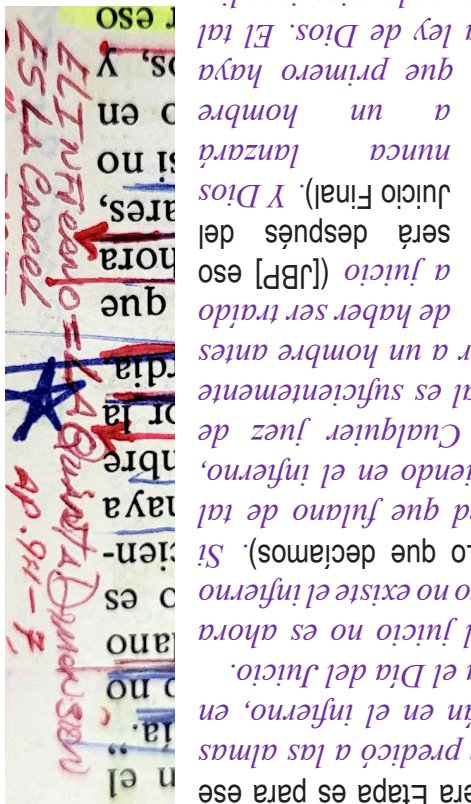 era Etapa es para ese
predicó a las almas
án en el infierno, en
n el Día del Juicio.
l juicio no es ahora
o no existe el infierno
Lo que decíamos). Si
a que fulano de tal
iendo en el infierno,
Cualquier juez de
al es suficientemente
r a un hombre antes
de haber ser traído
a juicio ([JBP] eso
será después del
Juicio Final). Y Dios
nunca lanzará
a un hombre
que primero haya
a ley de Dios. El tal
n el
ía.
o no
lano
o es
cien-
haya
mbre
or la
rdia.
que
hora
ares,
si no
o en
os, y
r eso
AP. 9:1-7
EL INFIERNO = LA QUINTA DIMENSION
ES LA CARCEL